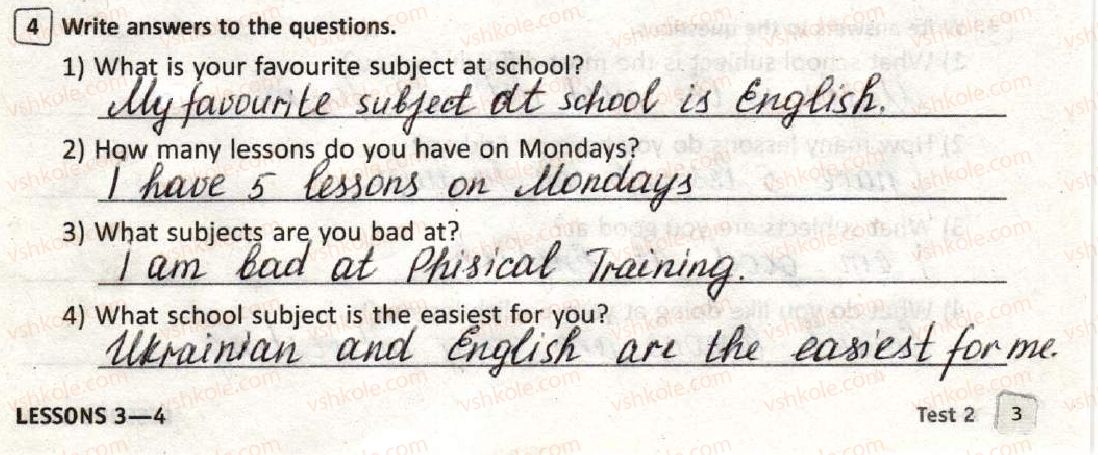 4 Write answers to the questions.
1) What is your favourite subject at school?
My favourite subject at school is English.
2) How many lessons do you have on Mondays?
I have 5 lessons on Mondays
3) What subjects are you bad at?
I am bad at Phisical Training.
4) What school subject is the easiest for you?
Ukrainian and English are the easiest for me.
LESSONS 3—4 Test 2 3